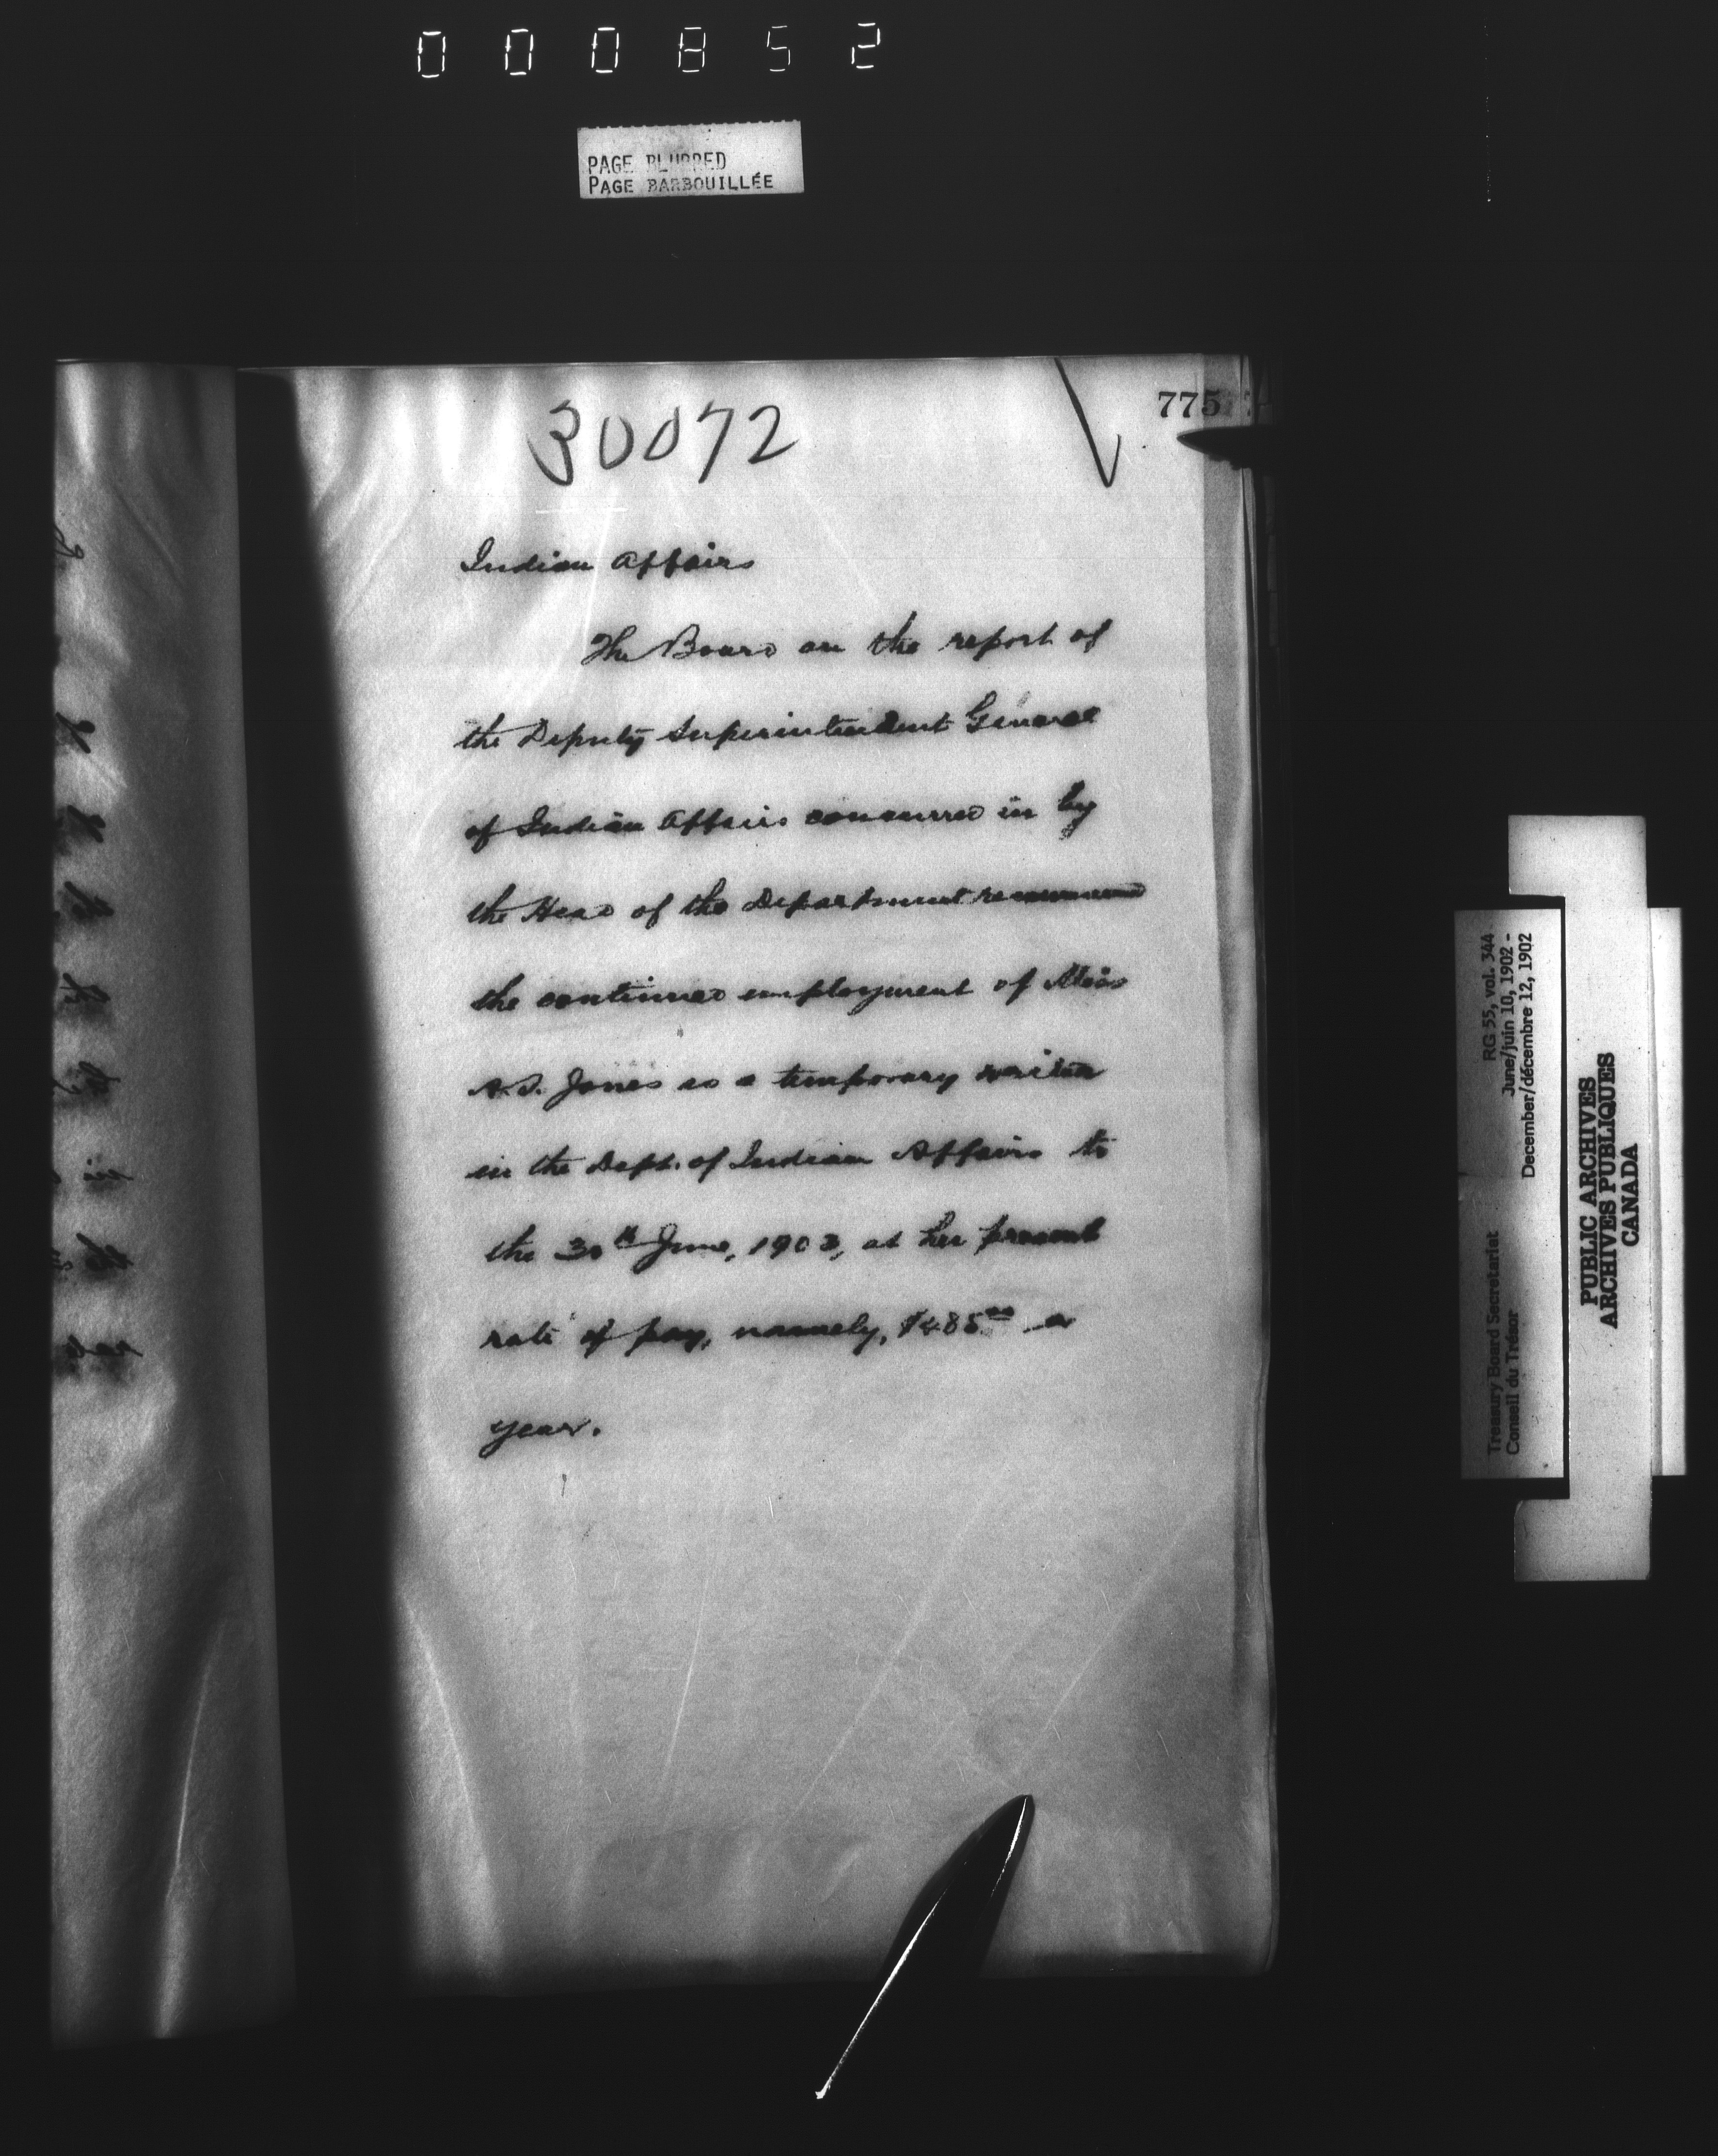 000852
PAGE BLURRED
PAGE BARBOUILLÉE
775
30072
Indian Affairs
The Board on the report of
the Deputy Superintendent General
of Indian Affairs concurred in by
the Head of the Department recommend
the continued employment of Miss
A.S. Jones as a temporary writer
in the Dept. of Indian Affairs to
the 30th June, 1903, at her present
rate of pay, namely, $485.00 a
year.
RG 55, vol. 344
June/juin 10, 1902 -
December/décembre 12, 1902
Treasury Board Secretariat
Conseil du Trésor
PUBLIC ARCHIVES
ARCHIVES PUBLIQUES
CANADA